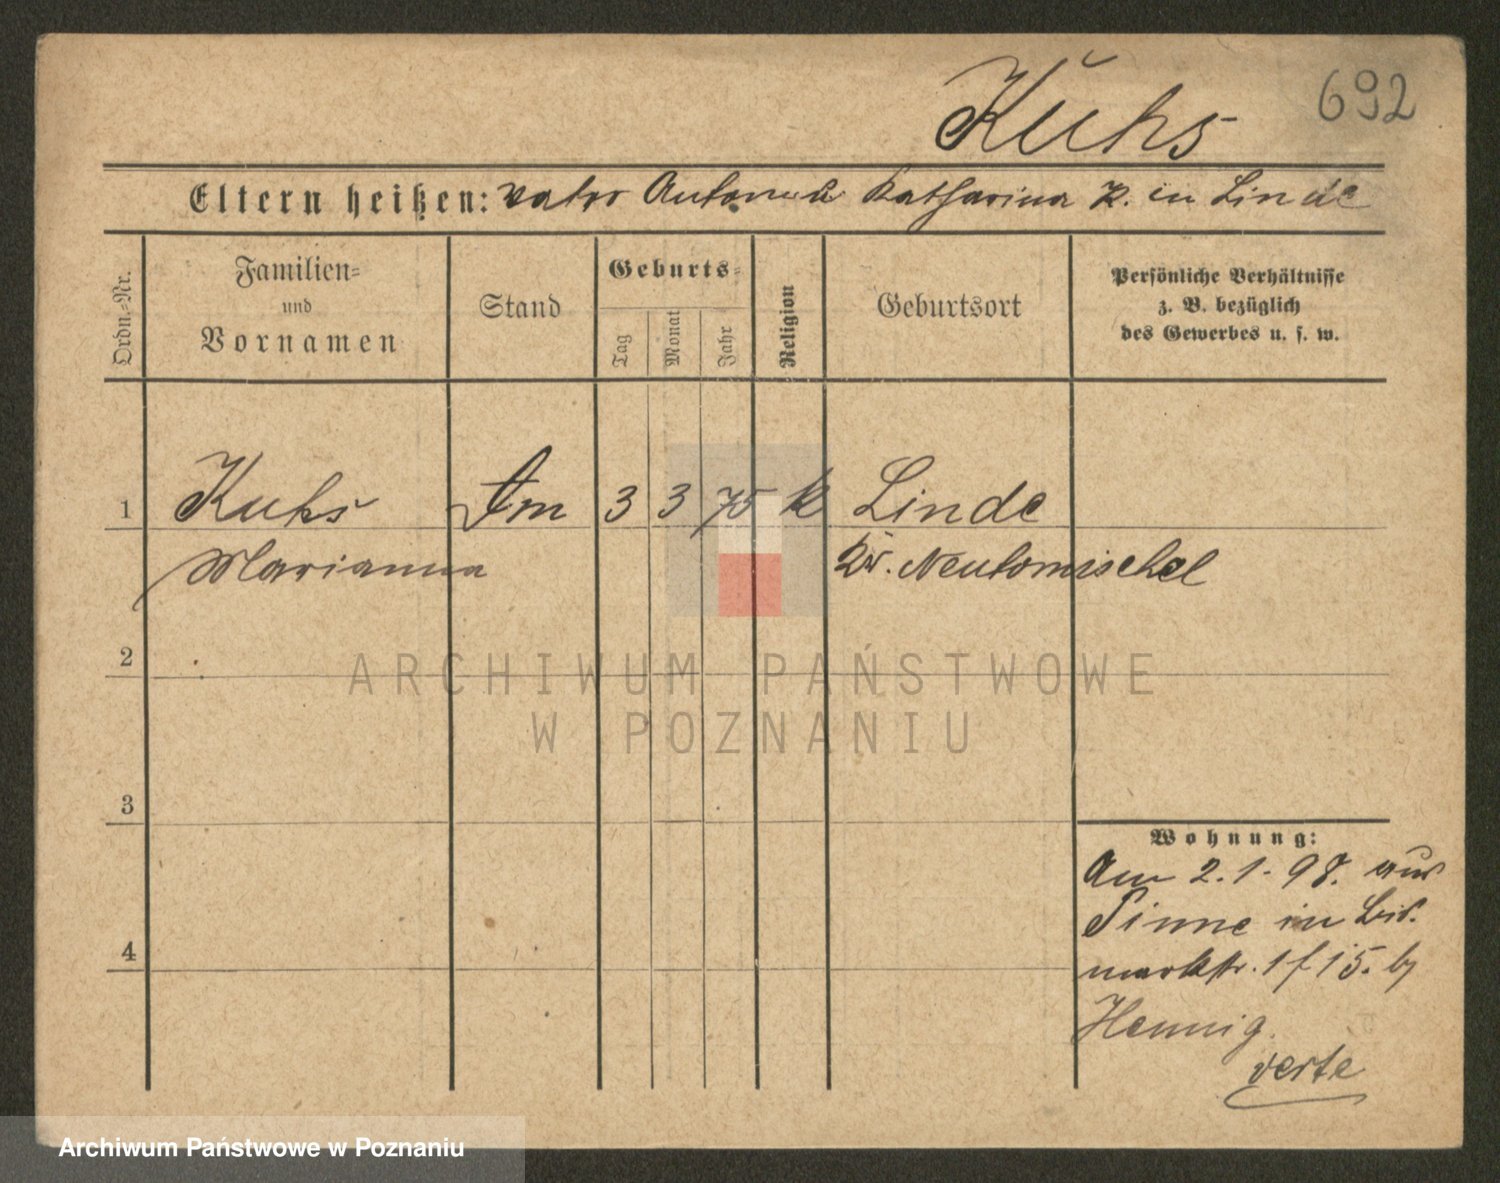 692
Kuhs
Eltern heißen: Vater Anton u. Katharina K. in Linde
Ordn.-Nr.
Familien-
und
Vornamen
Stand
Geburts-
Tag
Monat
Jahr
Religion
Geburtsort
Persönliche Verhältnisse
z. B. bezüglich
des Gewerbes u. s. w.
1 Kuhs 3 3 75 k Linde
Marianna Kr. Neutomischel
2
3
4
Wohnung:
Am 2.1.98. aus
Pinne in Bis.
markstr. 1 15. by
Hennig.
verte
ARCHIWUM PAŃSTWOWE
W POZNANIU
Archiwum Państwowe w Poznaniu